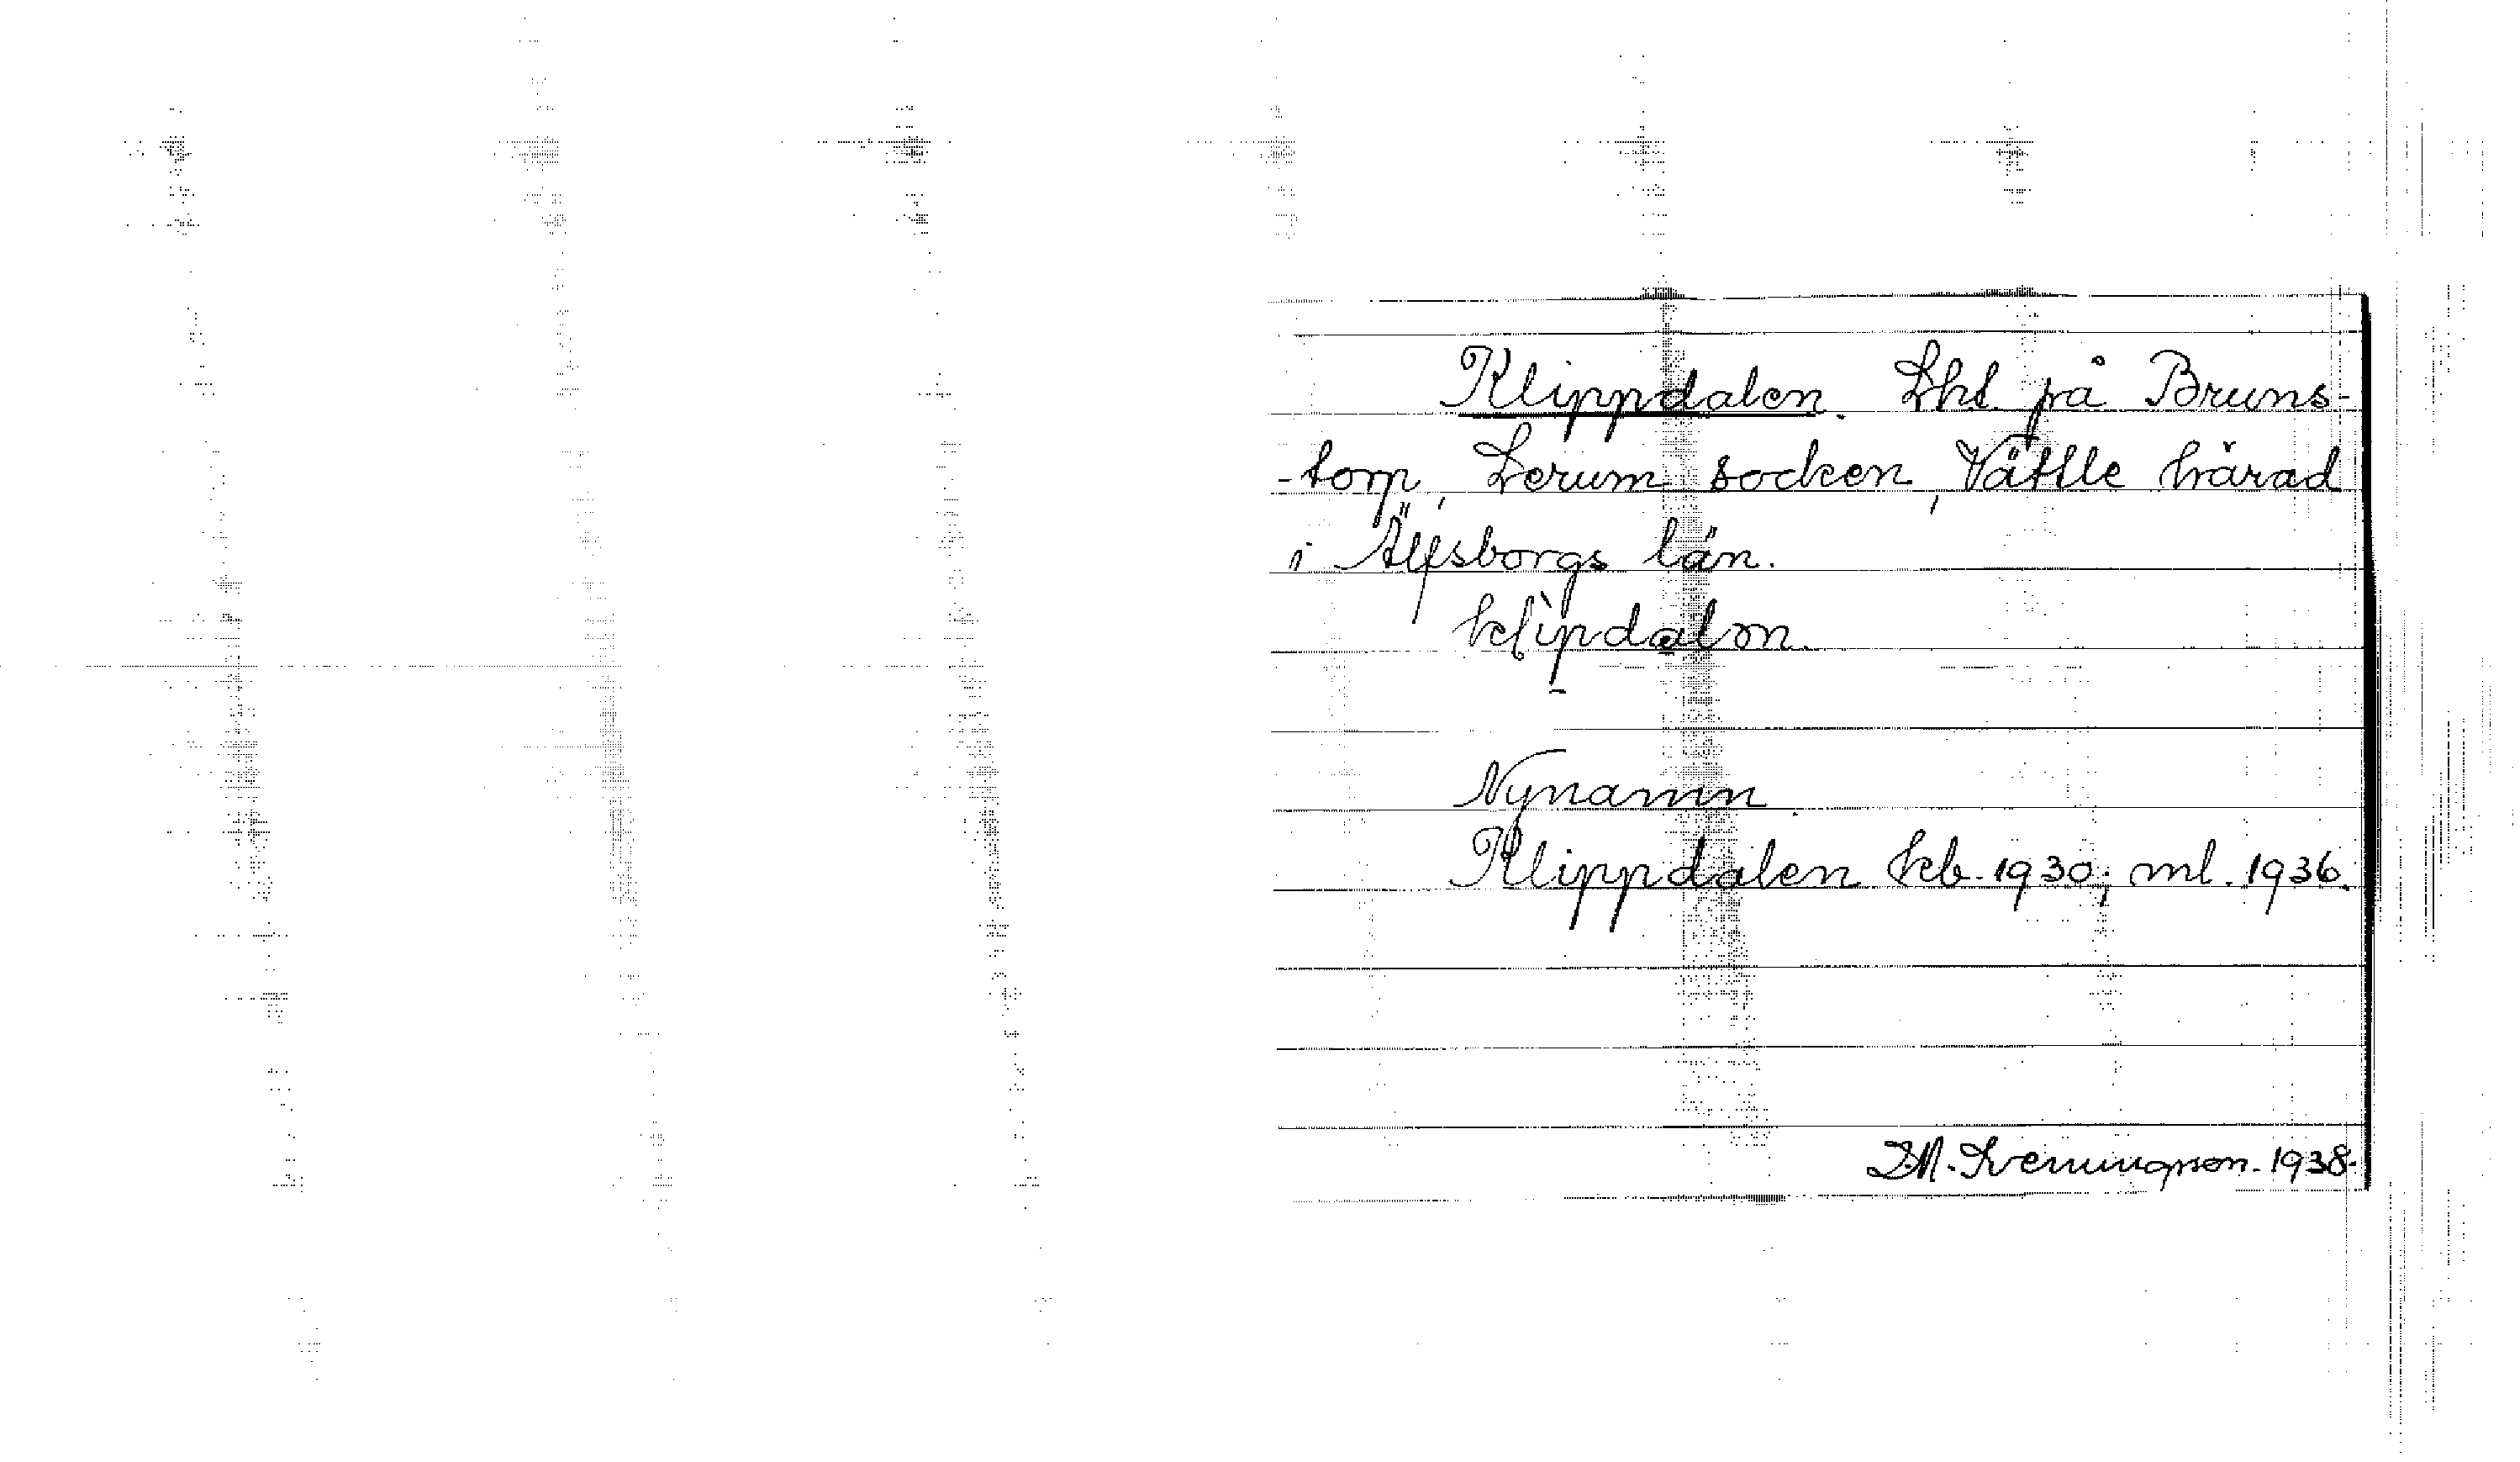 Klippdalen. Lht på Bruns-
-torp, Lerum socken, Vättle härad
i Älfsborgs län.
klìpdalən.
Nynamn.
Klippdalen kb. 1930; ml. 1936.
1938.